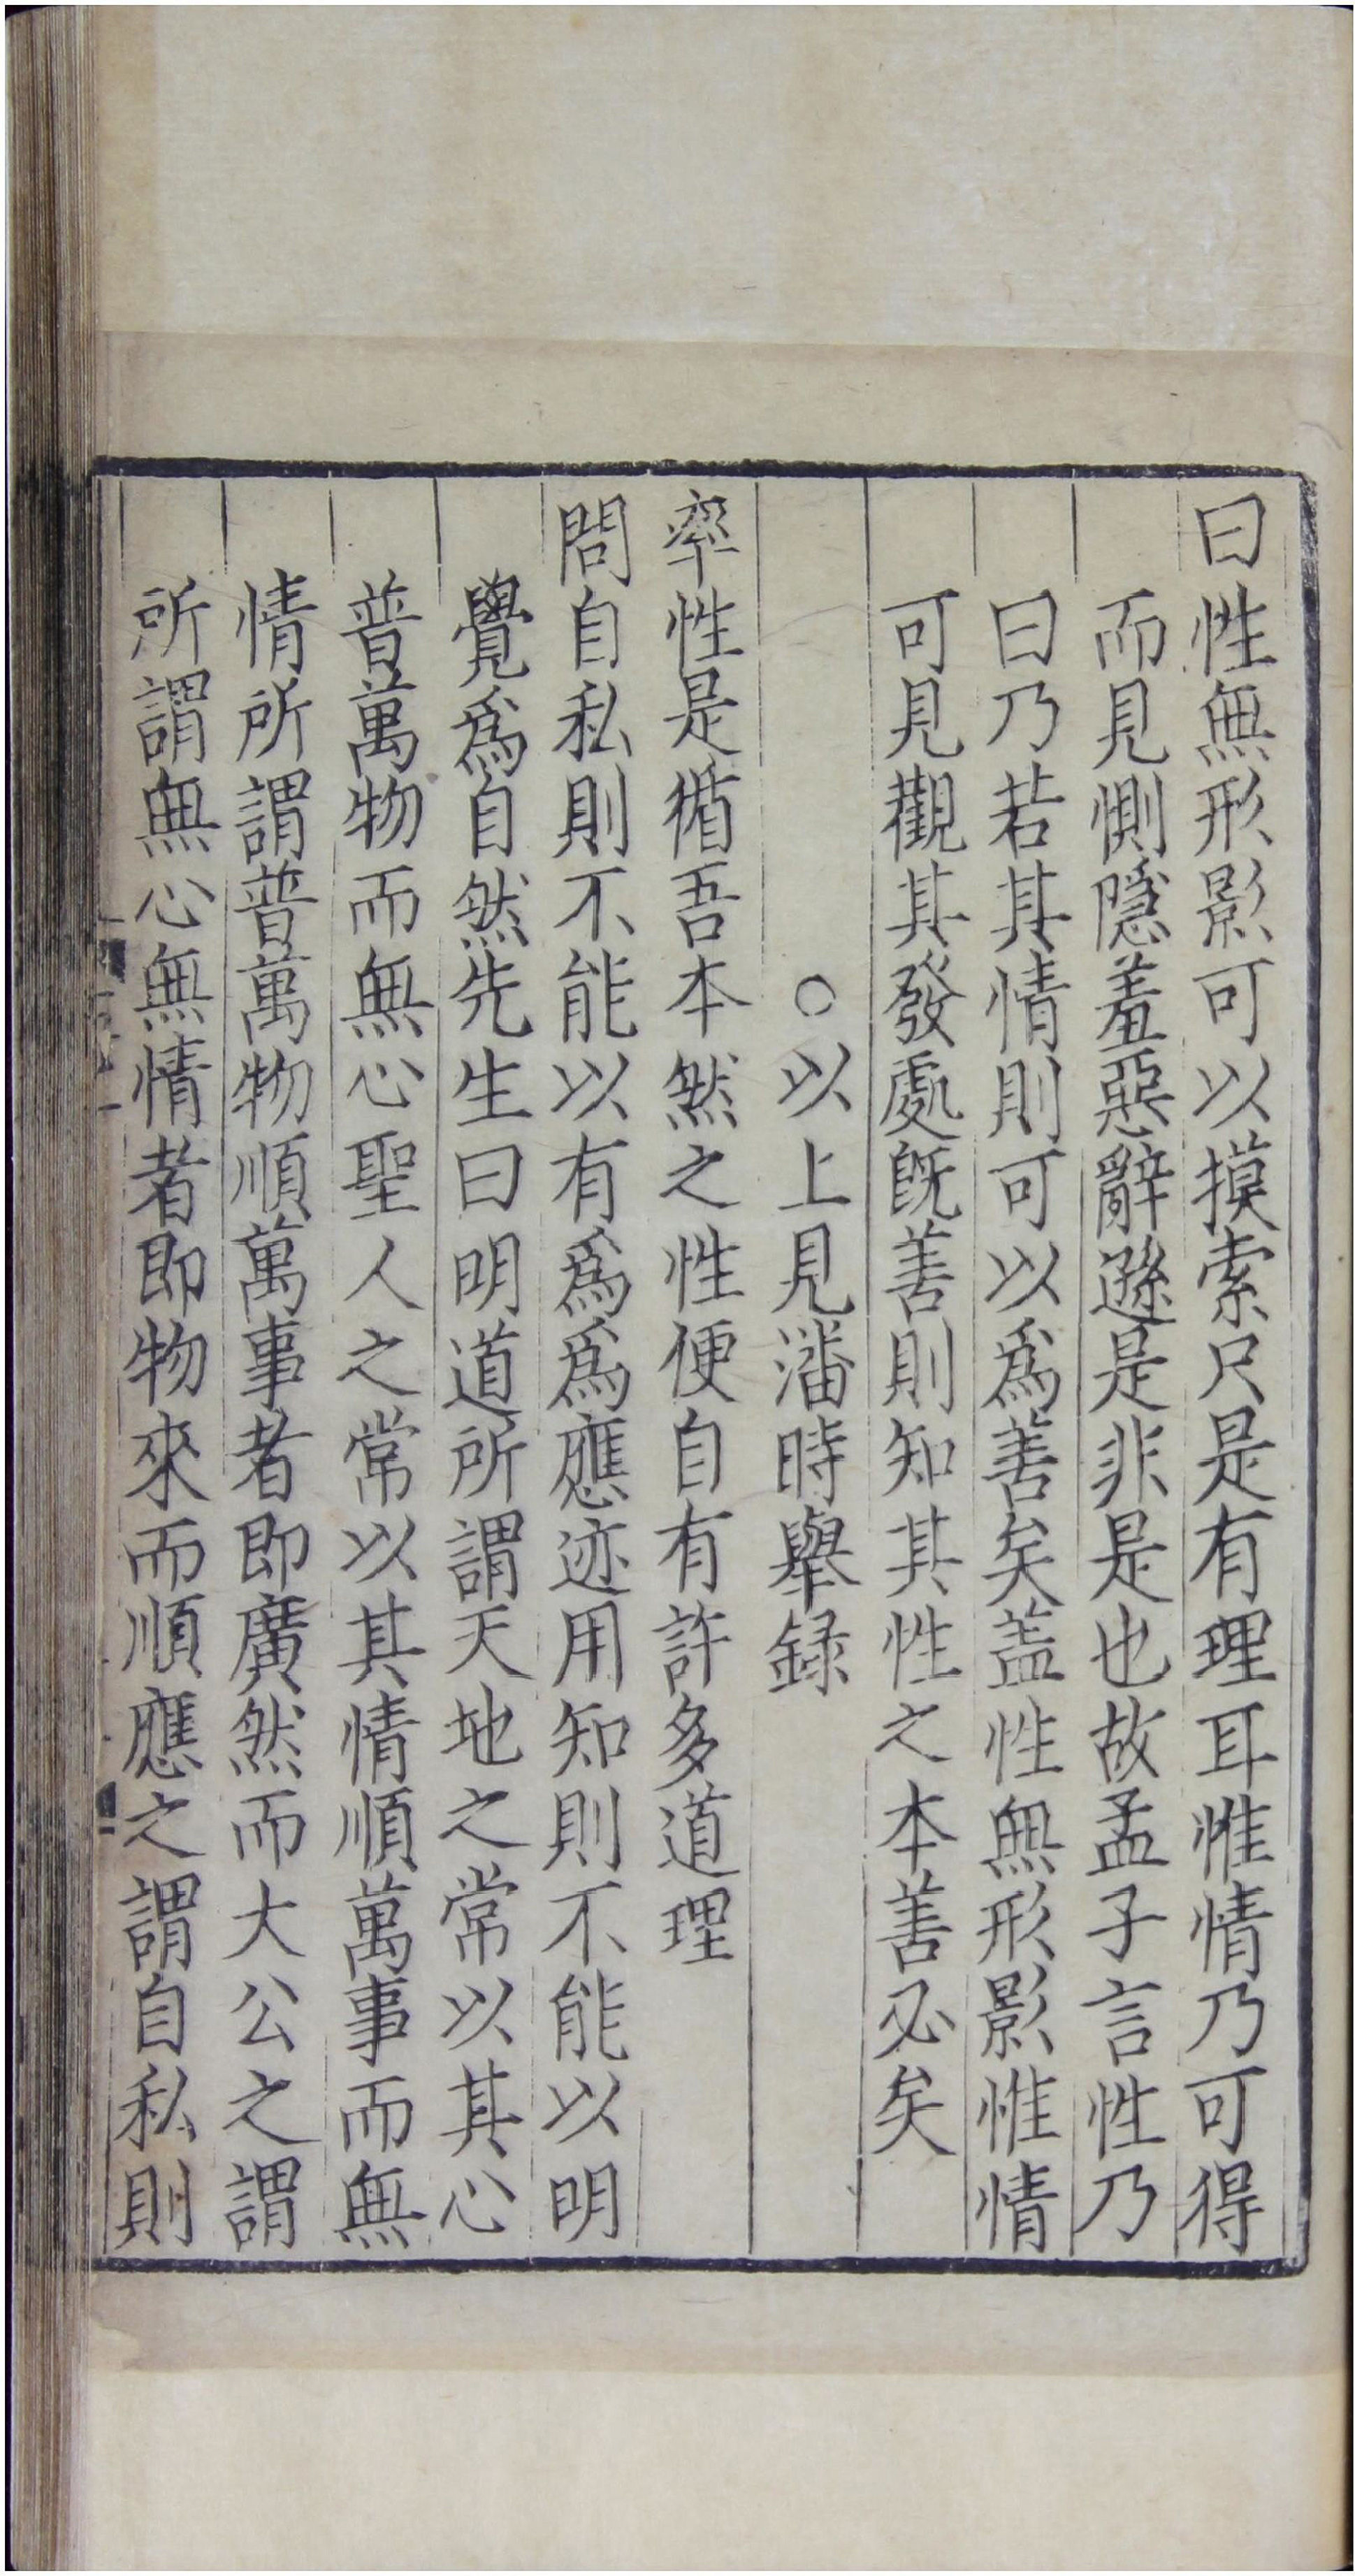 曰性無形影可以摸索只是有理耳惟情乃可得
而見惻隱羞惡辭遜是非是也故孟子言性乃
曰乃若其情則可以爲善矣盖性無形影惟情
可見觀其發處旣善則知其性之本善必矣
○以上見潘時舉録
率性是循吾本然之性便自有許多道理
問自私則不能以有爲爲應迹用知則不能以明
覺爲自然先生曰明道所謂天地之常以其心
普萬物而無心聖人之常以其情順萬事而無
情所謂普萬物順萬事者即廣然而大公之謂
所謂無心無情者即物來而順應之謂自私則